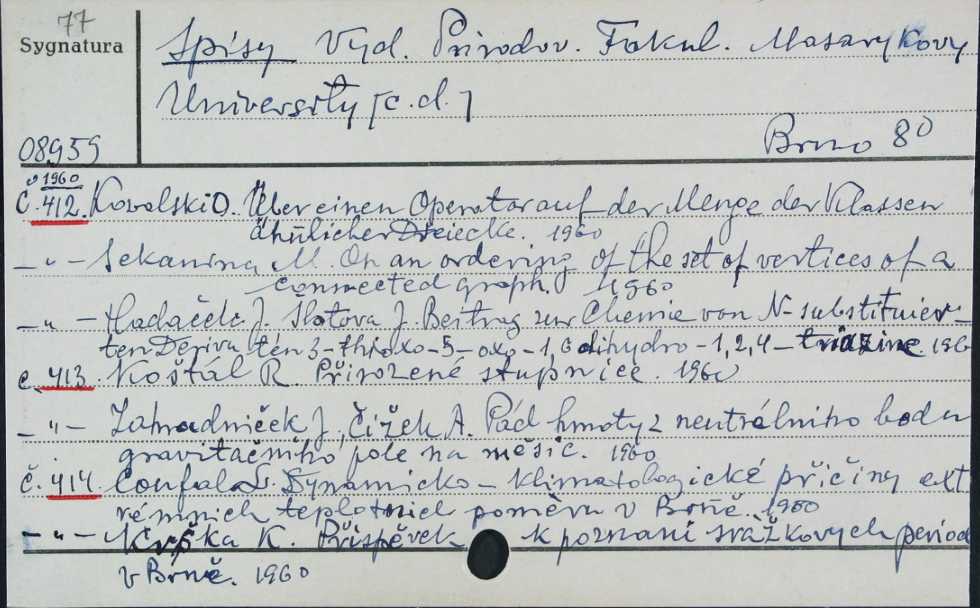 77
Sygnatura
Spisy Vyd. Přirodov. Fakul. Masarykovy
University [c.d.]
Brno 8°
08959
1960
č. 412. Kovalski D. Über einen Operator auf der Menge der Klassen
ähnlicher Dreiecke. 1960
– " – Sekanina M. On an ordering of the set of vertices of a
connected graph. 1960
– " – Hadáček J. Slotova J. Beitrag zur Chemie von N-substituier-
ten Derivaten 3-thioxo-5-oxo-1,6 dihydro-1,2,4-triazine. 1960
č. 413. Koštál R. Přirozené stupnice. 1960
– " – Zahradniček J., Čižek A. Pád hmoty z neutrálniho bodu
gravitačniho pole na měsic. 1960
č. 414. Coufal L. Dynamicko-klimatologické přičiny ext
rémnich teplotnich poměru v Brně. 1960
– " – Krška K. Přispěvek k poznani srážkovych period
v Brně. 1960